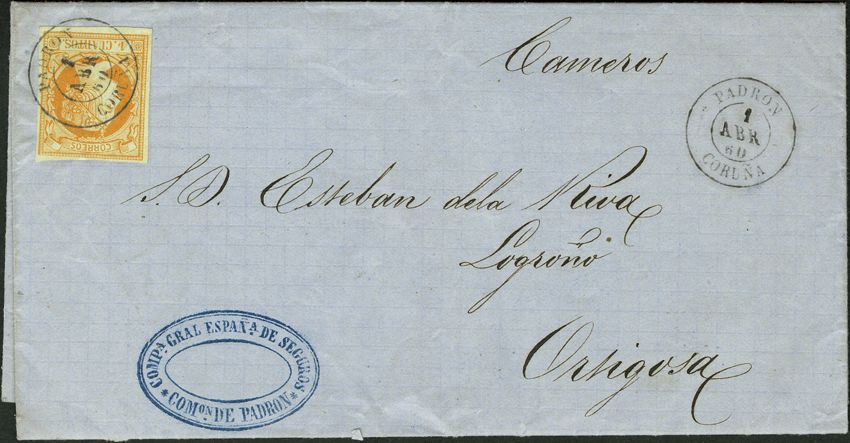 4 CUARTOS
CORREOS
PADRON
1
ABR
60
CORUÑA
Cameros
PADRON
1
ABR
60
CORUÑA
S. D. Esteban dela Riva
Logroño
Ortigosa
COMPª GRAL ESPAÑª DE SEGUROS
* COMºN DE PADRON *